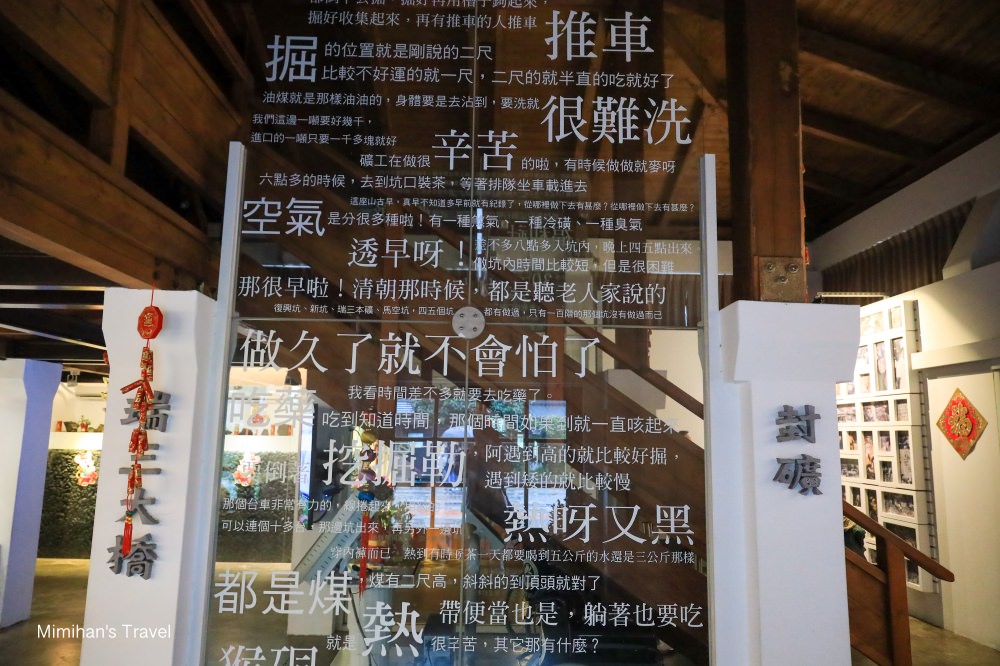 掘好收集起來，再有推車的人推車
推車
掘
的位置就是剛說的二尺
比較不好運的就一尺，二尺的就半直的吃就好了
油煤就是那樣油油的，身體要是去沾到，要洗就
很難洗
我們這邊一噸要好幾千，
進口的一噸只要一千多塊就好
礦工在做很
辛苦
的啦，有時候做做就麥呀
六點多的時候，去到坑口裝茶，等著排隊坐車載進去
這座山古早，真早不知道多早前就有紀錄了，從哪裡做下去有甚麼？從哪裡做下去有甚麼？
空氣
是分很多種啦！有一種
氣、一種冷磺、一種臭氣
透早呀！
差不多八點多入坑內，晚上四五點出來
做坑內時間比較短，但是很困難
那很早啦！清朝那時候，都是聽老人家說的
復興坑、新坑、瑞三本礦、馬空坑，四五個坑
都有做過，只有一百
的那個坑沒有做過而已
做久了就不會怕了
我看時間差不多就要去吃藥了。
吃藥
吃到知道時間，那個時間如果到就一直咳起來
倒
挖掘勒
，阿遇到高的就比較好掘，
遇到矮的就比較慢
那個台車非常有力的，
可以連個十多台，那邊坑出來，再另外一邊坑
熱呀又黑
穿內褲而已，熱到有時
茶一天都要喝到五公斤的水還是三公斤那樣
都是煤
，煤有二尺高，斜斜的到頂頭就對了
就是
熱
帶便當也是，躺著也要吃
很辛苦，其它那有什麼？
猴硐
瑞三大橋
封礦
Mimihan's Travel